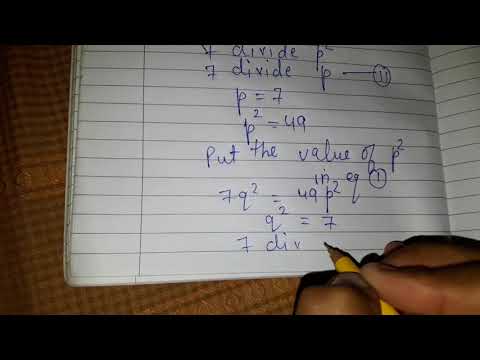 7 divide p²
7 divide p — (ii)
p = 7
p² = 49
Put the value of p²
in eq (1)
7q² = 49p²
q² = 7
7 div